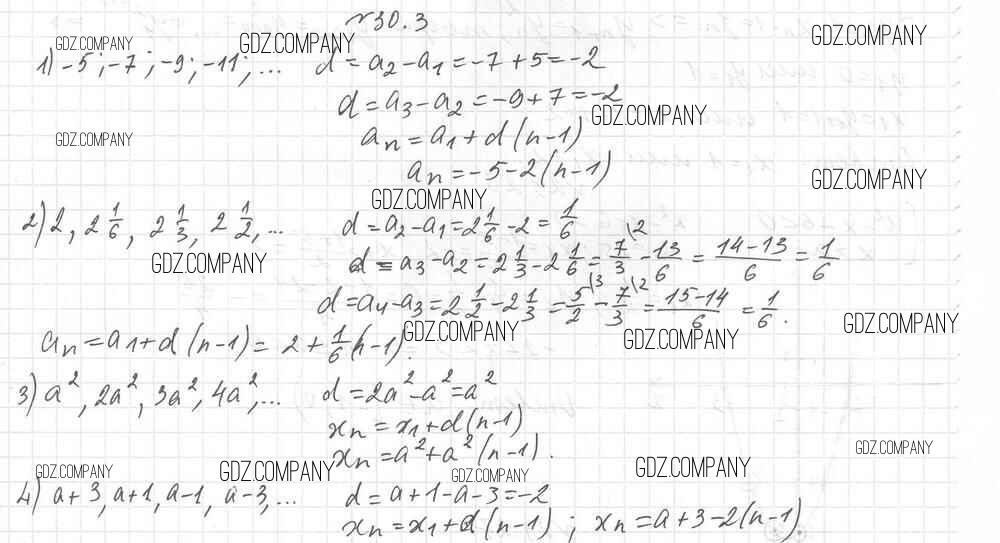 №30.3
GDZ.COMPANY GDZ.COMPANY GDZ.COMPANY
1) -5; -7; -9; -11; ... d = a₂ - a₁ = -7 + 5 = -2
d = a₃ - a₂ = -9 + 7 = -2
GDZ.COMPANY
GDZ.COMPANY aₙ = a₁ + d(n-1)
aₙ = -5 - 2(n-1)
GDZ.COMPANY
GDZ.COMPANY
2) 2, 2 1/6, 2 1/3, 2 1/2, ... d = a₂ - a₁ = 2 1/6 - 2 = 1/6
GDZ.COMPANY d = a₃ - a₂ = 2 1/3 - 2 1/6 = 7/3 \2 - 13/6 = (14-13)/6 = 1/6
d = a₄ - a₃ = 2 1/2 - 2 1/3 = 5/2 \3 - 7/3 \2 = (15-14)/6 = 1/6.
GDZ.COMPANY GDZ.COMPANY GDZ.COMPANY
aₙ = a₁ + d(n-1) = 2 + 1/6(n-1).
3) a², 2a², 3a², 4a², ... d = 2a² - a² = a²
xₙ = x₁ + d(n-1)
xₙ = a² + a²(n-1).
GDZ.COMPANY
GDZ.COMPANY GDZ.COMPANY GDZ.COMPANY GDZ.COMPANY
4) a+3, a+1, a-1, a-3, ... d = a+1-a-3 = -2
xₙ = x₁ + d(n-1); xₙ = a+3-2(n-1)